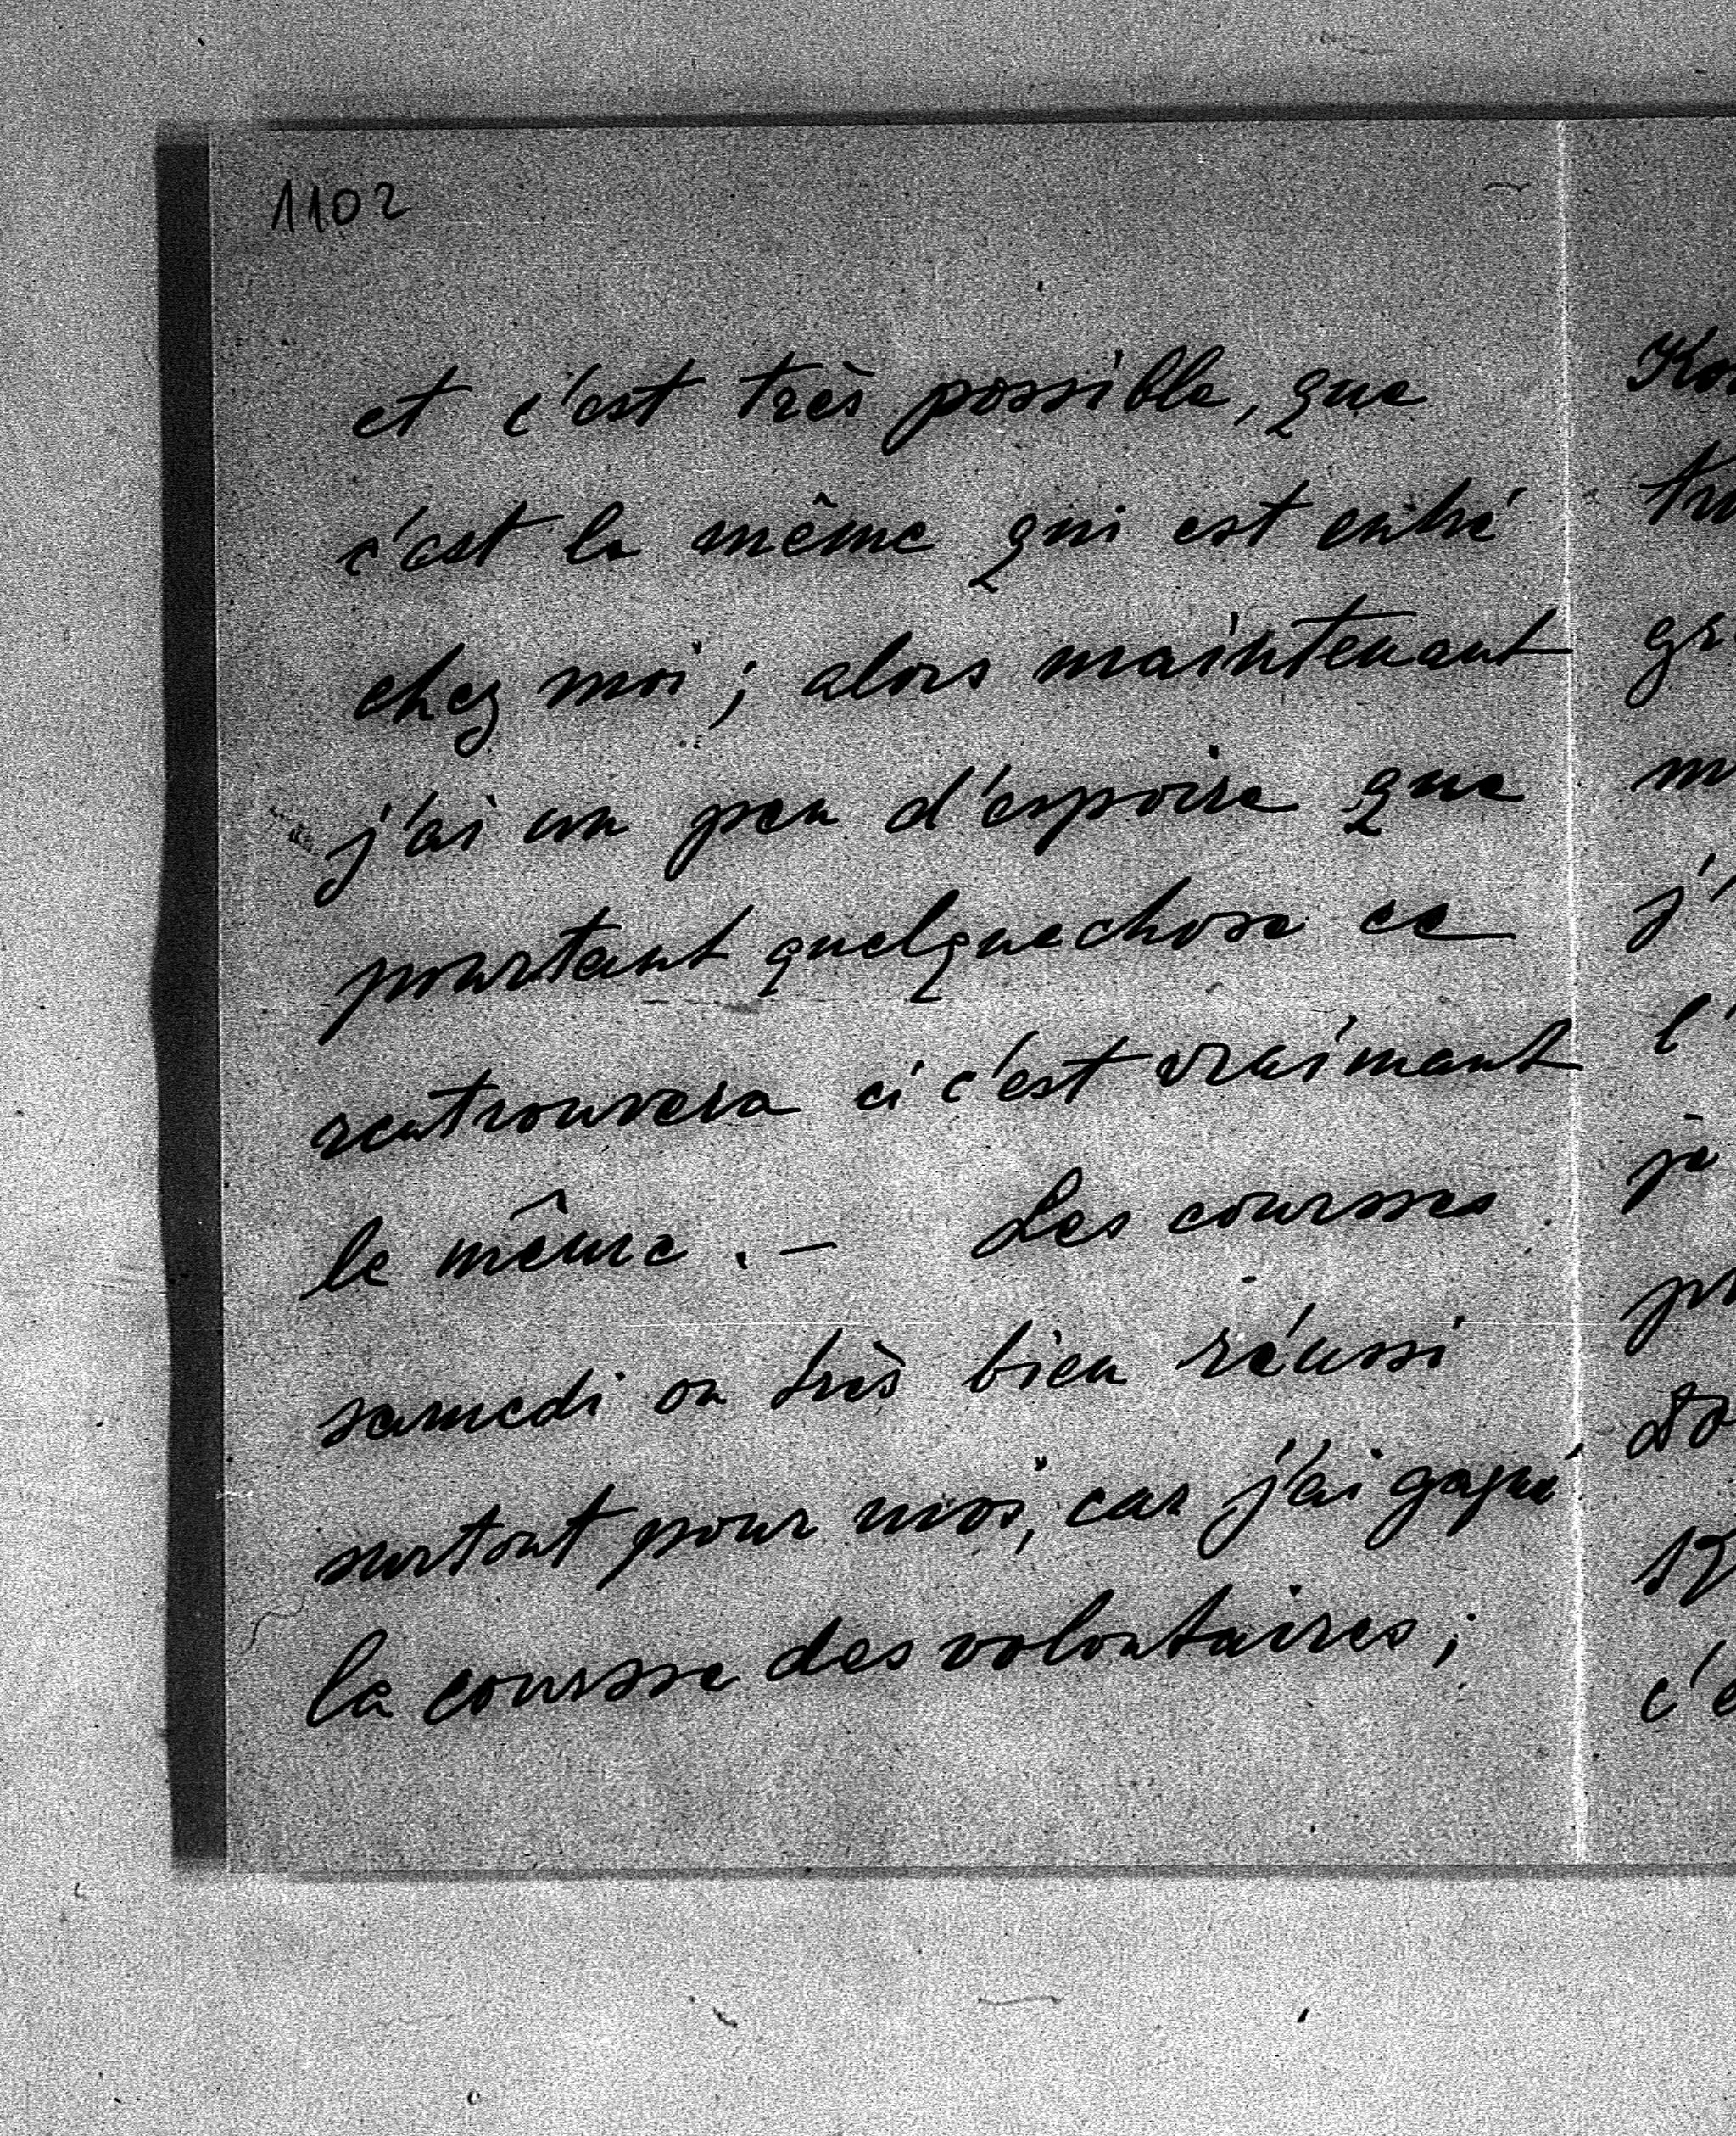 1102
et c'est très possible, que
c'est le même qui est entré
chez moi; alors maintenant
j'ai un peu d'espoire que
pourtant quelquechose ce
rentrouvera ci c'est vraimant
le même. — Les coursses
samedi on très bien réussi
surtout pour moi, car j'ai gagné
la coursse des volontaires;